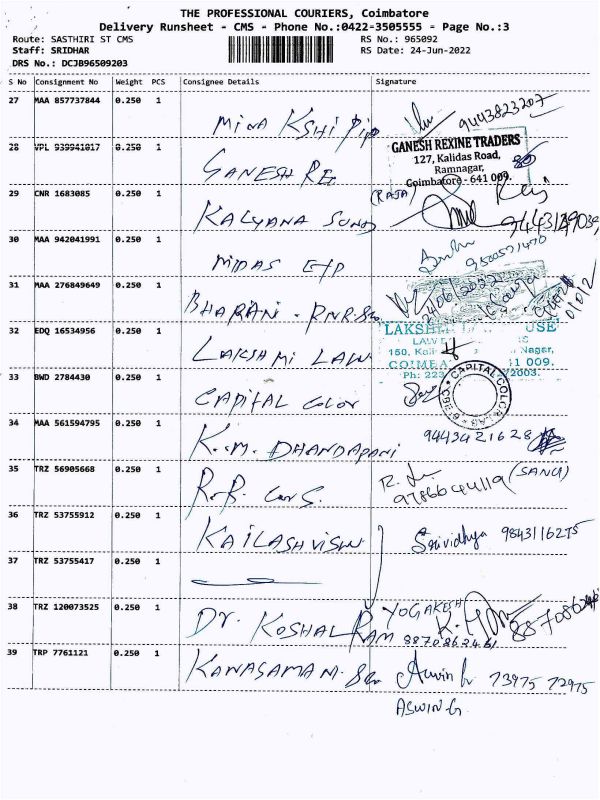 THE PROFESSIONAL COURIERS, Coimbatore
Delivery Runsheet - CMS - Phone No.:0422-3505555 - Page No.:3
Route: SASTHIRI ST CMS RS No.: 965092
Staff: SRIDHAR RS Date: 24-Jun-2022
DRS No.: DCJB96509203
S No Consignment No Weight PCS Consignee Details Signature
27 MAA 857737844 0.250 1 MINA KSHI 9443823207
GANESH REXINE TRADERS
127, Kalidas Road,
Ramnagar,
Coimbatore - 641 009.
28 VPL 939941017 0.250 1 GANESH RE
29 CNR 1683085 0.250 1 KALYANA SUND (RAJA)
30 MAA 942041991 0.250 1 MIDAS 9500571470
31 MAA 276849649 0.250 1 BHARANI - RNR.
32 EDQ 16534956 0.250 1 LAKSHMI LAW
LAKSH USE
150, Nagar,
COIMBA 1 009.
Ph: 223 2003.
33 BWD 2784430 0.250 1 CAPITAL COLOR
CAPITAL COLOR LAB
34 MAA 561594795 0.250 1 K.M. DHANDAPANI 9443421628
35 TRZ 56905668 0.250 1 R.R. (SANU)
36 TRZ 53755912 0.250 1 KAILASH VISHW Srividhya 9843116275
37 TRZ 53755417 0.250 1
38 TRZ 120073525 0.250 1 DR. KOSHAL RAM YOGAKESH
8870862461
39 TRP 7761121 0.250 1 KANASAMAN. 73975 72975
ASWIN.G.